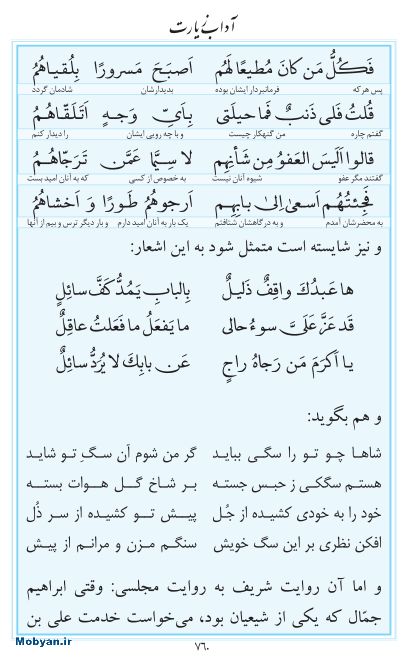 آداب زیارت
فَكُلُّ مَن كانَ مُطيعًا لَهُم اَصبَحَ مَسرورًا بِلُقياهُمُ
پس هر که فرمانبردار ایشان بوده بدیدارشان شادمان گردد
قُلتُ فَلى ذَنبٌ فَما حيلَتى بِاَىِّ وَجهٍ اَتَلَقّاهُمُ
گفتم چاره من گنهکار چیست و با چه رویی ایشان را دیدار کنم
قالوا اَلَيسَ العَفوُ مِن شَأنِهِم لا سِيَّما عَمَّن تَرَجّاهُمُ
گفتند مگر عفو شیوه آنان نیست به خصوص از کسی که به آنان امید بست
فَجِئتُهُم اَسعى اِلى بابِهِم اَرجوهُمُ طَورًا وَ اَخشاهُمُ
به محضرشان آمدم و به درگاهشان شتافتم یک بار به آنان امید دارم و بار دیگر ترس و بیم از آنها
و نیز شایسته است متمثل شود به این اشعار:
ها عَبدُكَ واقِفٌ ذَليلٌ بِالبابِ يَمُدُّ كَفَّ سائِلٍ
قَد عَزَّ عَلَىَّ سوءُ حالى ما يَفعَلُ ما فَعَلتُ عاقِلٌ
يا اَكرَمَ مَن رَجاهُ راجٍ عَن بابِكَ لا يُرَدُّ سائِلٌ
و هم بگوید:
شاها چو تو را سگی بباید گر من شوم آن سگِ تو شاید
هستم سگکی ز حبس جسته بر شاخ گل هوات بسته
خود را به خودی کشیده از جُل پیش تو کشیده از سر ذُل
افکن نظری بر این سگ خویش سنگم مزن و مرانم از پیش
و اما آن روایت شریف به روایت مجلسی: وقتی ابراهیم
جمّال که یکی از شیعیان بود، می‌خواست خدمت علی بن
۷۶۰
Mobyan.ir